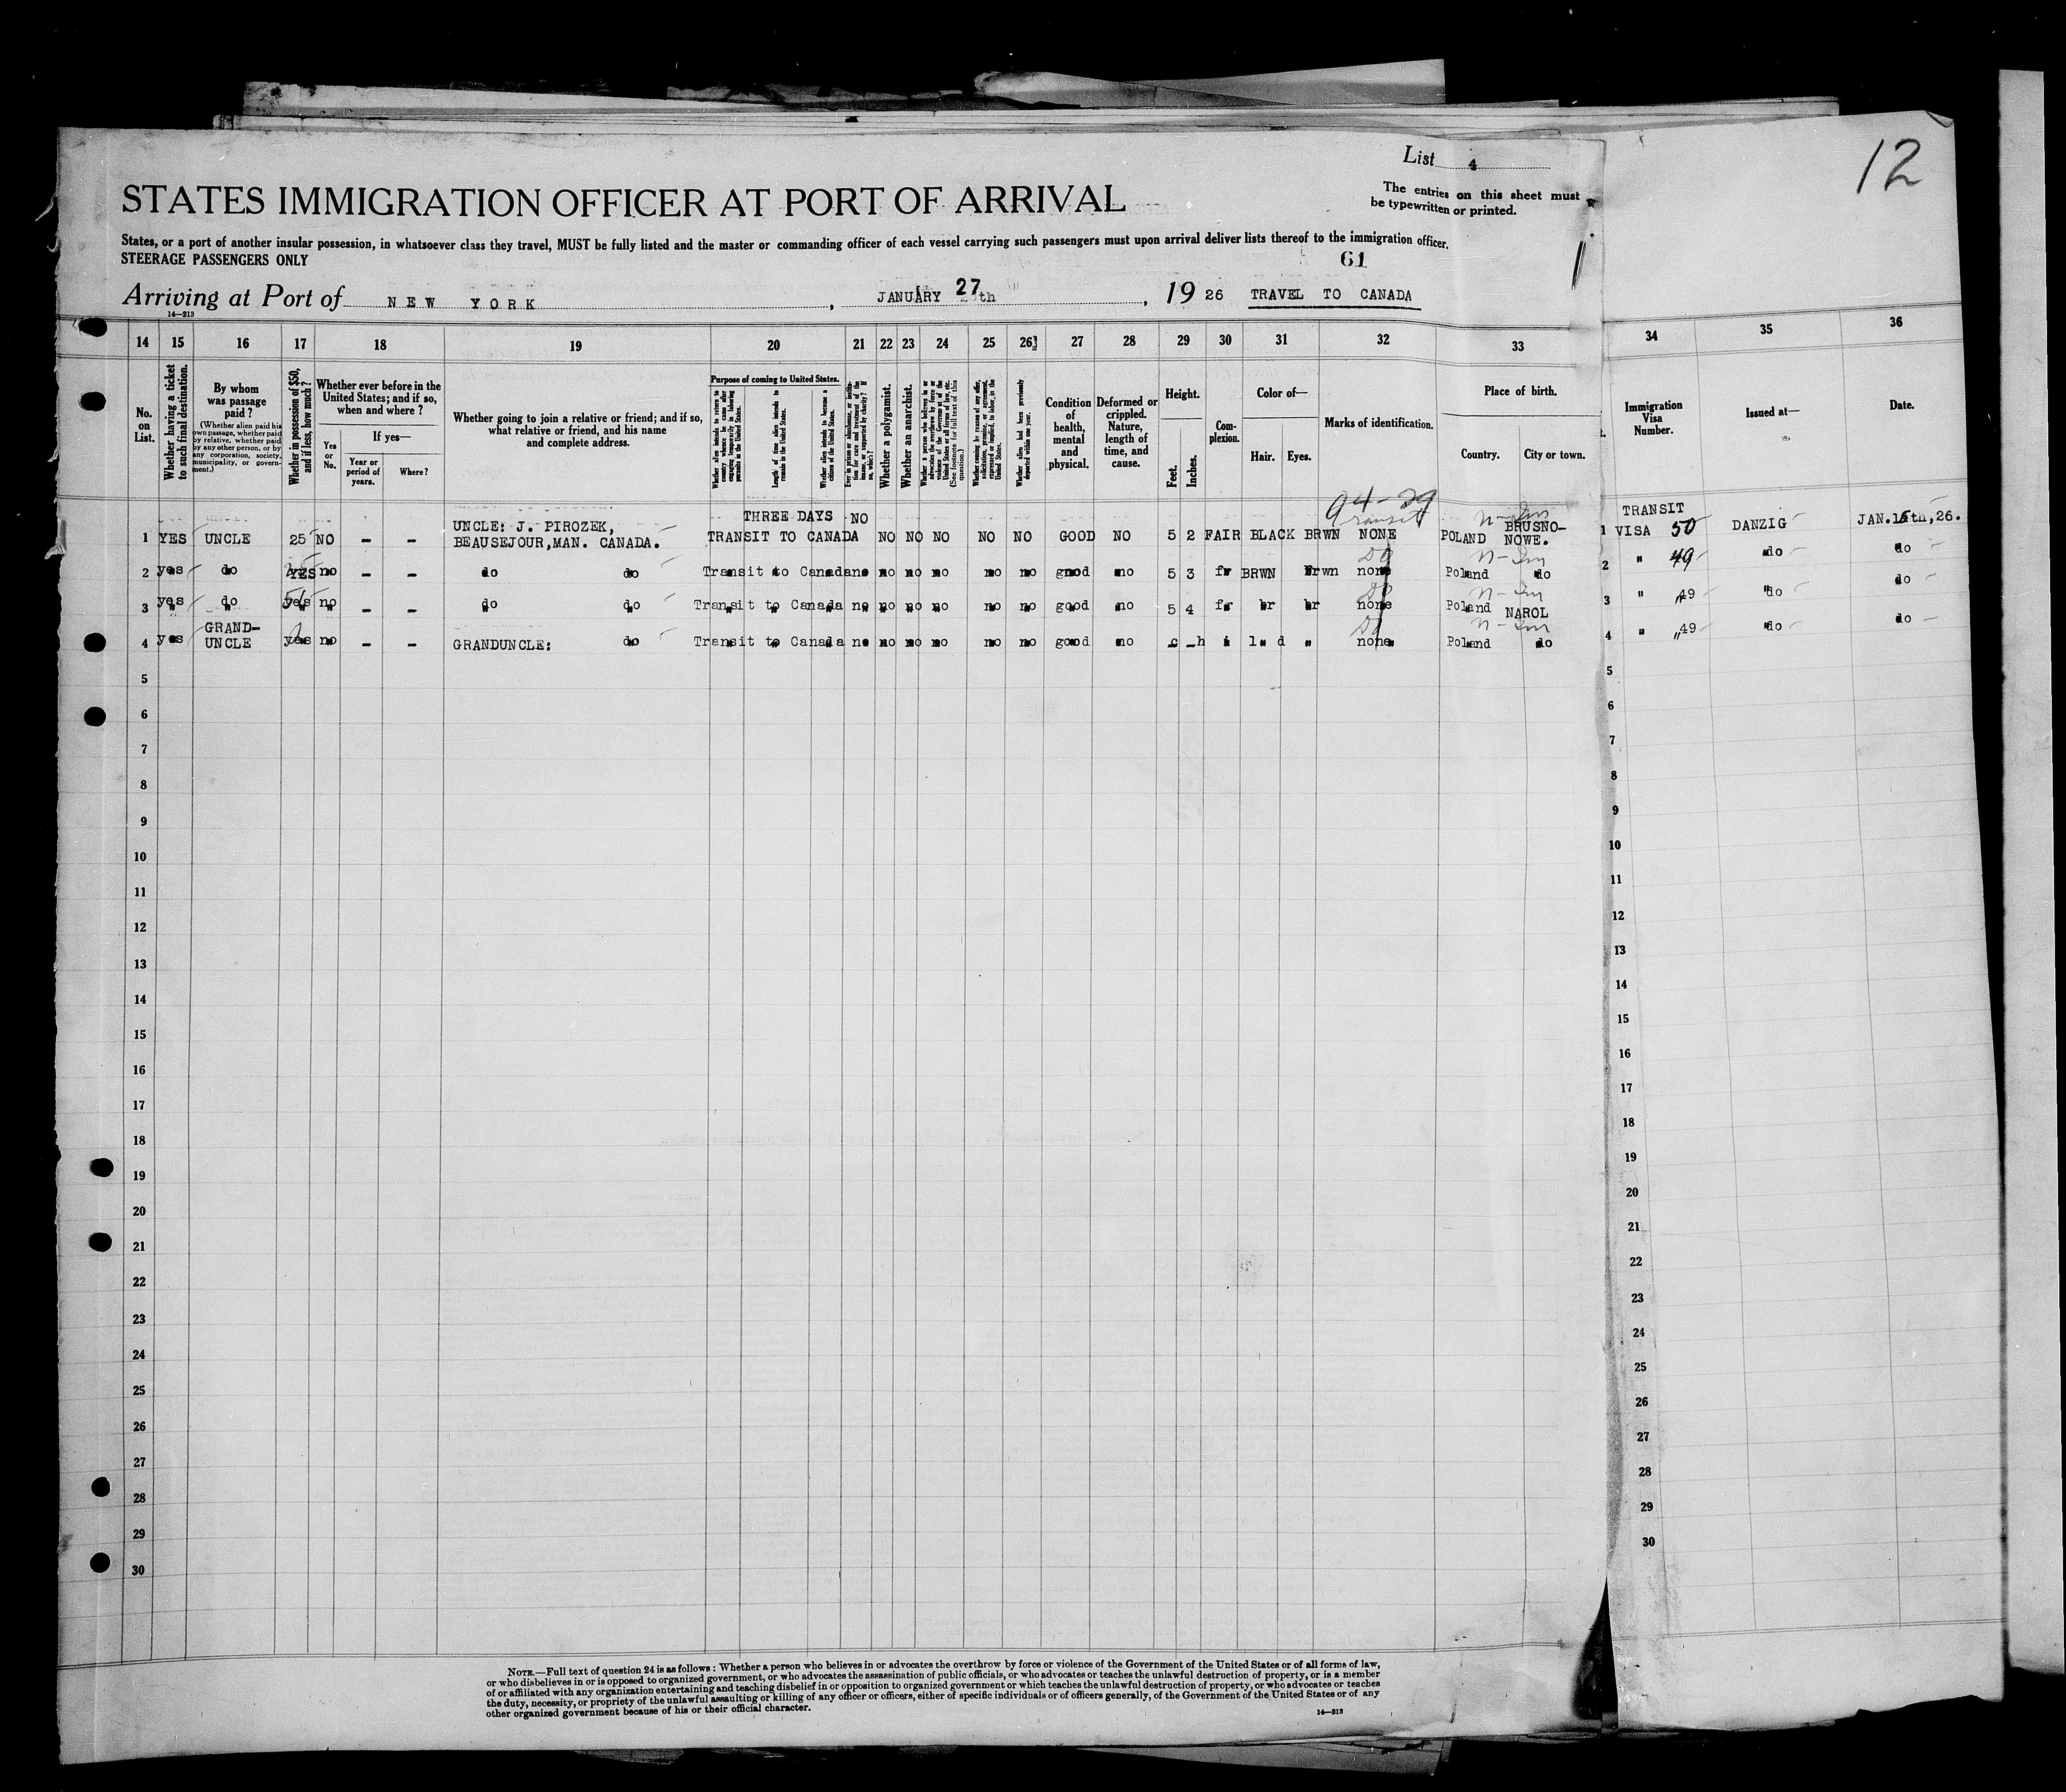 12
List 4
The entries on this sheet must
be typewritten or printed.
STATES IMMIGRATION OFFICER AT PORT OF ARRIVAL
States, or a port of another insular possession, in whatsoever class they travel, MUST be fully listed and the master or commanding officer of each vessel carrying such passengers must upon arrival deliver lists thereof to the immigration officer.
STEERAGE PASSENGERS ONLY
61
Arriving at Port of NEW YORK, JANUARY 27th, 1926 TRAVEL TO CANADA
14—213
14 15 16 17 18 19 20 21 22 23 24 25 26 27 28 29 30 31 32 33 34 35 36
No. on List.
Whether having a ticket to such final destination.
By whom was passage paid?
(Whether alien paid his own passage, whether paid by relative, whether paid by any other person, or by any corporation, society, municipality, or government.)
Whether in possession of $50, and if less, how much?
Whether ever before in the United States; and if so, when and where?
Yes or No.
If yes—
Year or period of years.
Where?
Whether going to join a relative or friend; and if so, what relative or friend, and his name and complete address.
Purpose of coming to United States.
Whether alien intends to return to country whence he came after engaging temporarily in laboring pursuits in the United States.
Length of time alien intends to remain in the United States.
Whether alien intends to become a citizen of the United States.
Ever in prison or almshouse, or institution for care and treatment of the insane, or supported by charity? If so, which?
Whether a polygamist.
Whether an anarchist.
Whether a person who believes in or advocates the overthrow by force or violence of the Government of the United States or all forms of law, etc. (See footnote for full text of this question.)
Whether coming by reason of any offer, solicitation, promise, or agreement, expressed or implied, to labor in the United States.
Whether alien had been previously deported within one year.
Condition of health, mental and physical.
Deformed or crippled. Nature, length of time, and cause.
Height.
Feet.
Inches.
Complexion.
Color of—
Hair. Eyes.
Marks of identification.
Place of birth.
Country. City or town.
Immigration Visa Number.
Issued at—
Date.
94-29
Transit
THREE DAYS NO
1 YES UNCLE 25 NO - - UNCLE: J. PIROZEK, BEAUSEJOUR,MAN. CANADA. TRANSIT TO CANADA NO NO NO NO NO GOOD NO 5 2 FAIR BLACK BRWN NONE POLAND BRUSNO-NOWE. 1 TRANSIT VISA 50 DANZIG JAN.15th,26.
2 yes do YES no - - do do Transit to Canada no no no no no no good no 5 3 fr BRWN Brwn none Poland do 2 " 49 do do
3 yes do yes no - - do do Transit to Canada no no no no no no good no 5 4 fr br br none Poland NAROL 3 " 49 do do
4 yes GRAND-UNCLE yes no - - GRANDUNCLE: do Transit to Canada no no no no no no good no c h i l d " none Poland do 4 " 49 do do
5 5
6 6
7 7
8 8
9 9
10 10
11 11
12 12
13 13
14 14
15 15
16 16
17 17
18 18
19 19
20 20
21 21
22 22
23 23
24 24
25 25
26 26
27 27
28 28
29 29
30 30
NOTE.—Full text of question 24 is as follows: Whether a person who believes in or advocates the overthrow by force or violence of the Government of the United States or of all forms of law,
or who disbelieves in or is opposed to organized government, or who advocates the assassination of public officials, or who advocates or teaches the unlawful destruction of property, or is a member
of or affiliated with any organization entertaining and teaching disbelief in or opposition to organized government or which teaches the unlawful destruction of property, or who advocates or teaches
the duty, necessity, or propriety of the unlawful assaulting or killing of any officer or officers, either of specific individuals or of officers generally, of the Government of the United States or of any
other organized government because of his or their official character.
14—213